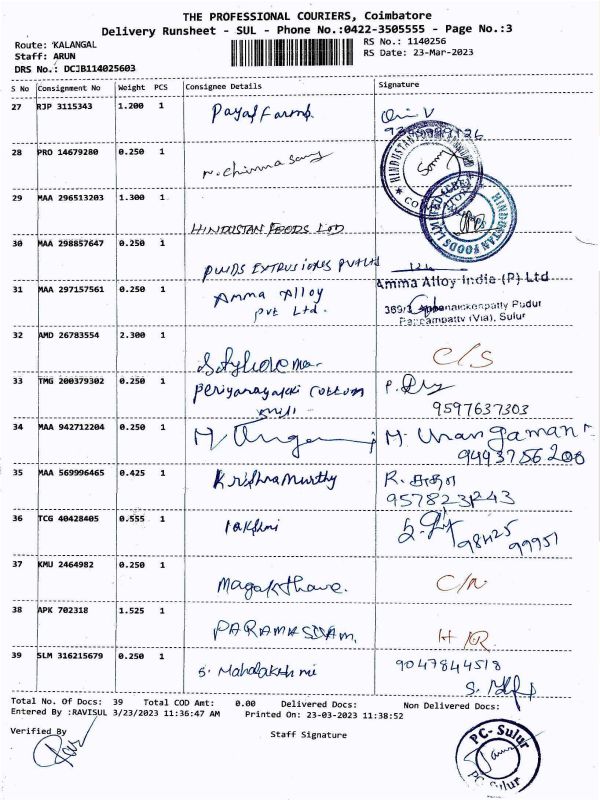 THE PROFESSIONAL COURIERS, Coimbatore
Delivery Runsheet - SUL - Phone No.:0422-3505555 - Page No.:3
Route: KALANGAL
RS No.: 1140256
Staff: ARUN
RS Date: 23-Mar-2023
DRS No.: DCJB114025603
S No Consignment No Weight PCS Consignee Details Signature
27 RJP 3115343 1.200 1 Payal Farms
28 PRO 14679280 0.250 1 n. chinna samy
29 MAA 296513203 1.300 1 HINDUSTAN FOODS LTD
30 MAA 298857647 0.250 1 EXTRUSIONS
31 MAA 297157561 0.250 1 Amma Alloy
Pvt Ltd.
Amma Alloy India (P) Ltd
Pudur
(Via), Sulur
32 AMD 26783554 2.300 1 C/S
33 TMG 200379302 0.250 1 Periyanayakki Cotton
mill
9597637303
34 MAA 942712204 0.250 1 M.
9493756200
35 MAA 569996465 0.425 1 Krishnamurthy R. சுதா
9578231243
36 TCG 40428405 0.555 1 lakshmi
98425
99951
37 KMU 2464982 0.250 1
38 APK 702318 1.525 1 H R
39 SLM 316215679 0.250 1 S. Mahalakshmi 9047844518
Total No. Of Docs: 39 Total COD Amt: 0.00 Delivered Docs: Non Delivered Docs:
Entered By :RAVISUL 3/23/2023 11:36:47 AM Printed On: 23-03-2023 11:38:52
Verified By
Staff Signature
HINDUSTAN FOODS LIMITED
PC- Sulur